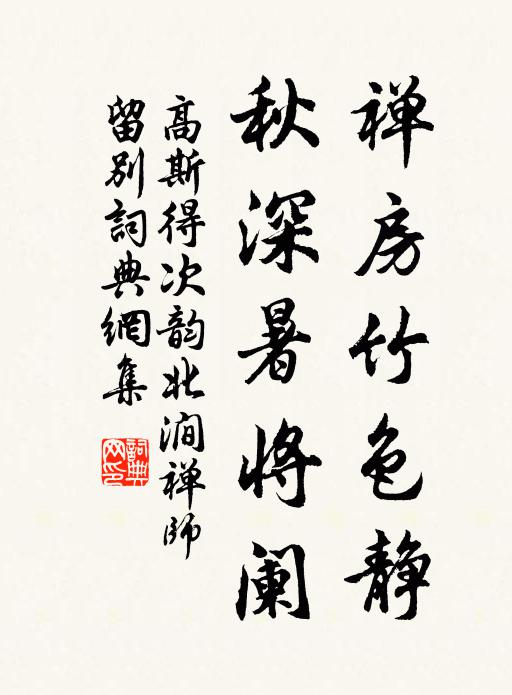 禅房竹色静
秋深暑将阑
高斯得次韵北涧禅师
留别詞典網集
詞典
网印